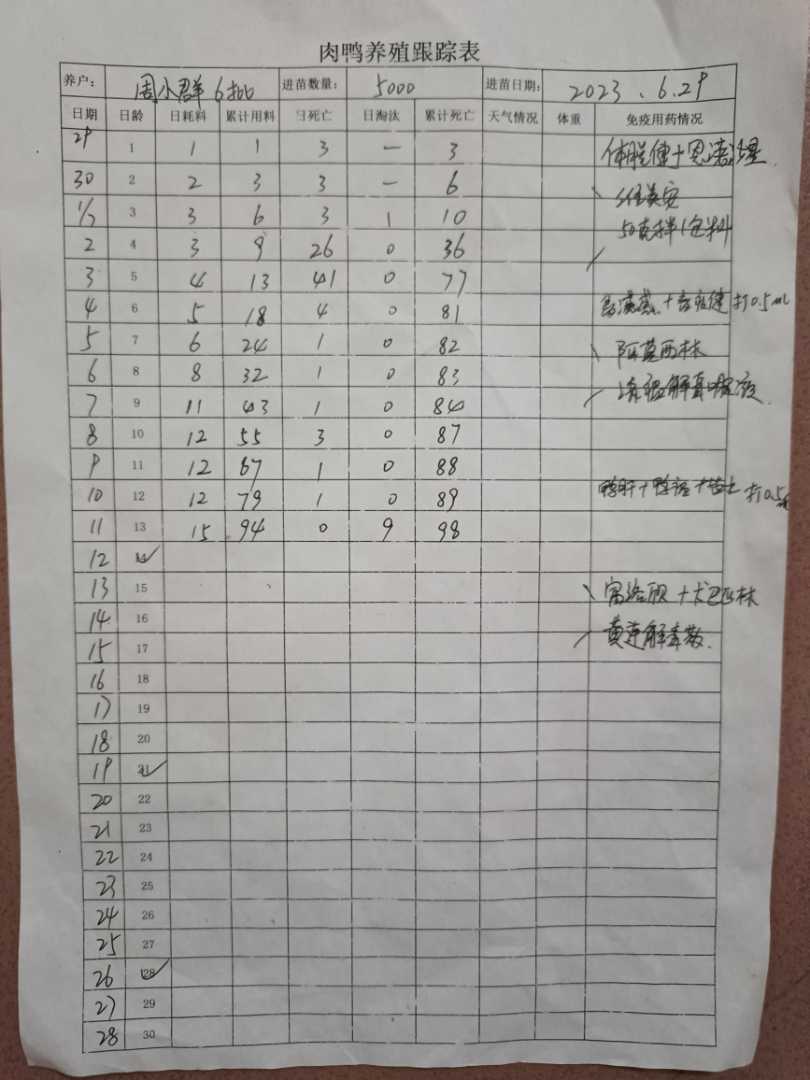 肉鸭养殖跟踪表
养户: 周小群 6批 进苗数量: 5000 进苗日期: 2023.6.29
日期 日龄 日耗料 累计用料 日死亡 日淘汰 累计死亡 天气情况 体重 免疫用药情况
29 1 1 1 3 — 3
30 2 2 3 3 — 6
1/7 3 3 6 3 1 10
2 4 3 9 26 0 36
3 5 4 13 41 0 77
4 6 5 18 4 0 81 打0.5ml
5 7 6 24 1 0 82 阿莫西林
6 8 8 32 1 0 83
7 9 11 43 1 0 84
8 10 12 55 3 0 87
9 11 12 67 1 0 88
10 12 12 79 1 0 89 打0.5
11 13 15 94 0 9 98
12 14
13 15
14 16 黄连解毒散.
15 17
16 18
17 19
18 20
19 21
20 22
21 23
22 24
23 25
24 26
25 27
26 28
27 29
28 30